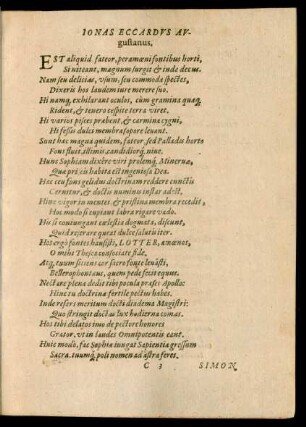 IONAS ECCARDVS AV-
gustanus.
EST aliquid fateor, peramœni fontibus horti,
Si niteant, magnum surgit & inde decus.
Nam seu delicias, vsum, seu commoda spectes,
Dixeris hos laudem iure merere suo.
Hi namq; exhilarant oculos, cùm gramina quæq;
Rident, & tenero cespite terra viret.
Hi varios pisces præbent, & carmina cygni,
Hi fessis dulci membra sopore leuant.
Sunt hæc magna quidem, fateor, sed Palladis horto
Fons fluit, istimis candidiorq; nitet.
Hunc Sophiam dixêre viri prolemq; Mineruæ,
Qua præside habita est ingeniosa Dea.
Hoc ceu fons gelidus doctrinam reddere cunctis
Cernitur, & doctis numina instar adest.
Hinc vigor in mentes & pristina membra reedit,
Hos modò si cupiant labra rigare vado.
Ho si coniungant cœlestia dogmata, discunt,
Quid reserare queat dulce salutis iter.
Hot ergò fontes hausisti, LOTTER, amœnos,
O mihi Theseâ consociate fide.
Atq; tuam sitiens ter sacro fonte leuâsti,
Bellerophonteus, quem pede fecit equus.
Nectare plena dedit tibi pocula præses Apollo:
Hinc tu doctrina fertile pectus habes.
Inde refers meritum docti diadema Magistri:
Quo stringit doctas lux hodierna comas.
Hos tibi delatos imo de pectore honores
Grator, vt in laudes Omnipotentis eant.
Huic modò, fac Sophia iungat Sapientia gressum
Sacra, tuumq; poli nomen ad astra feret.
C 3 SIMON